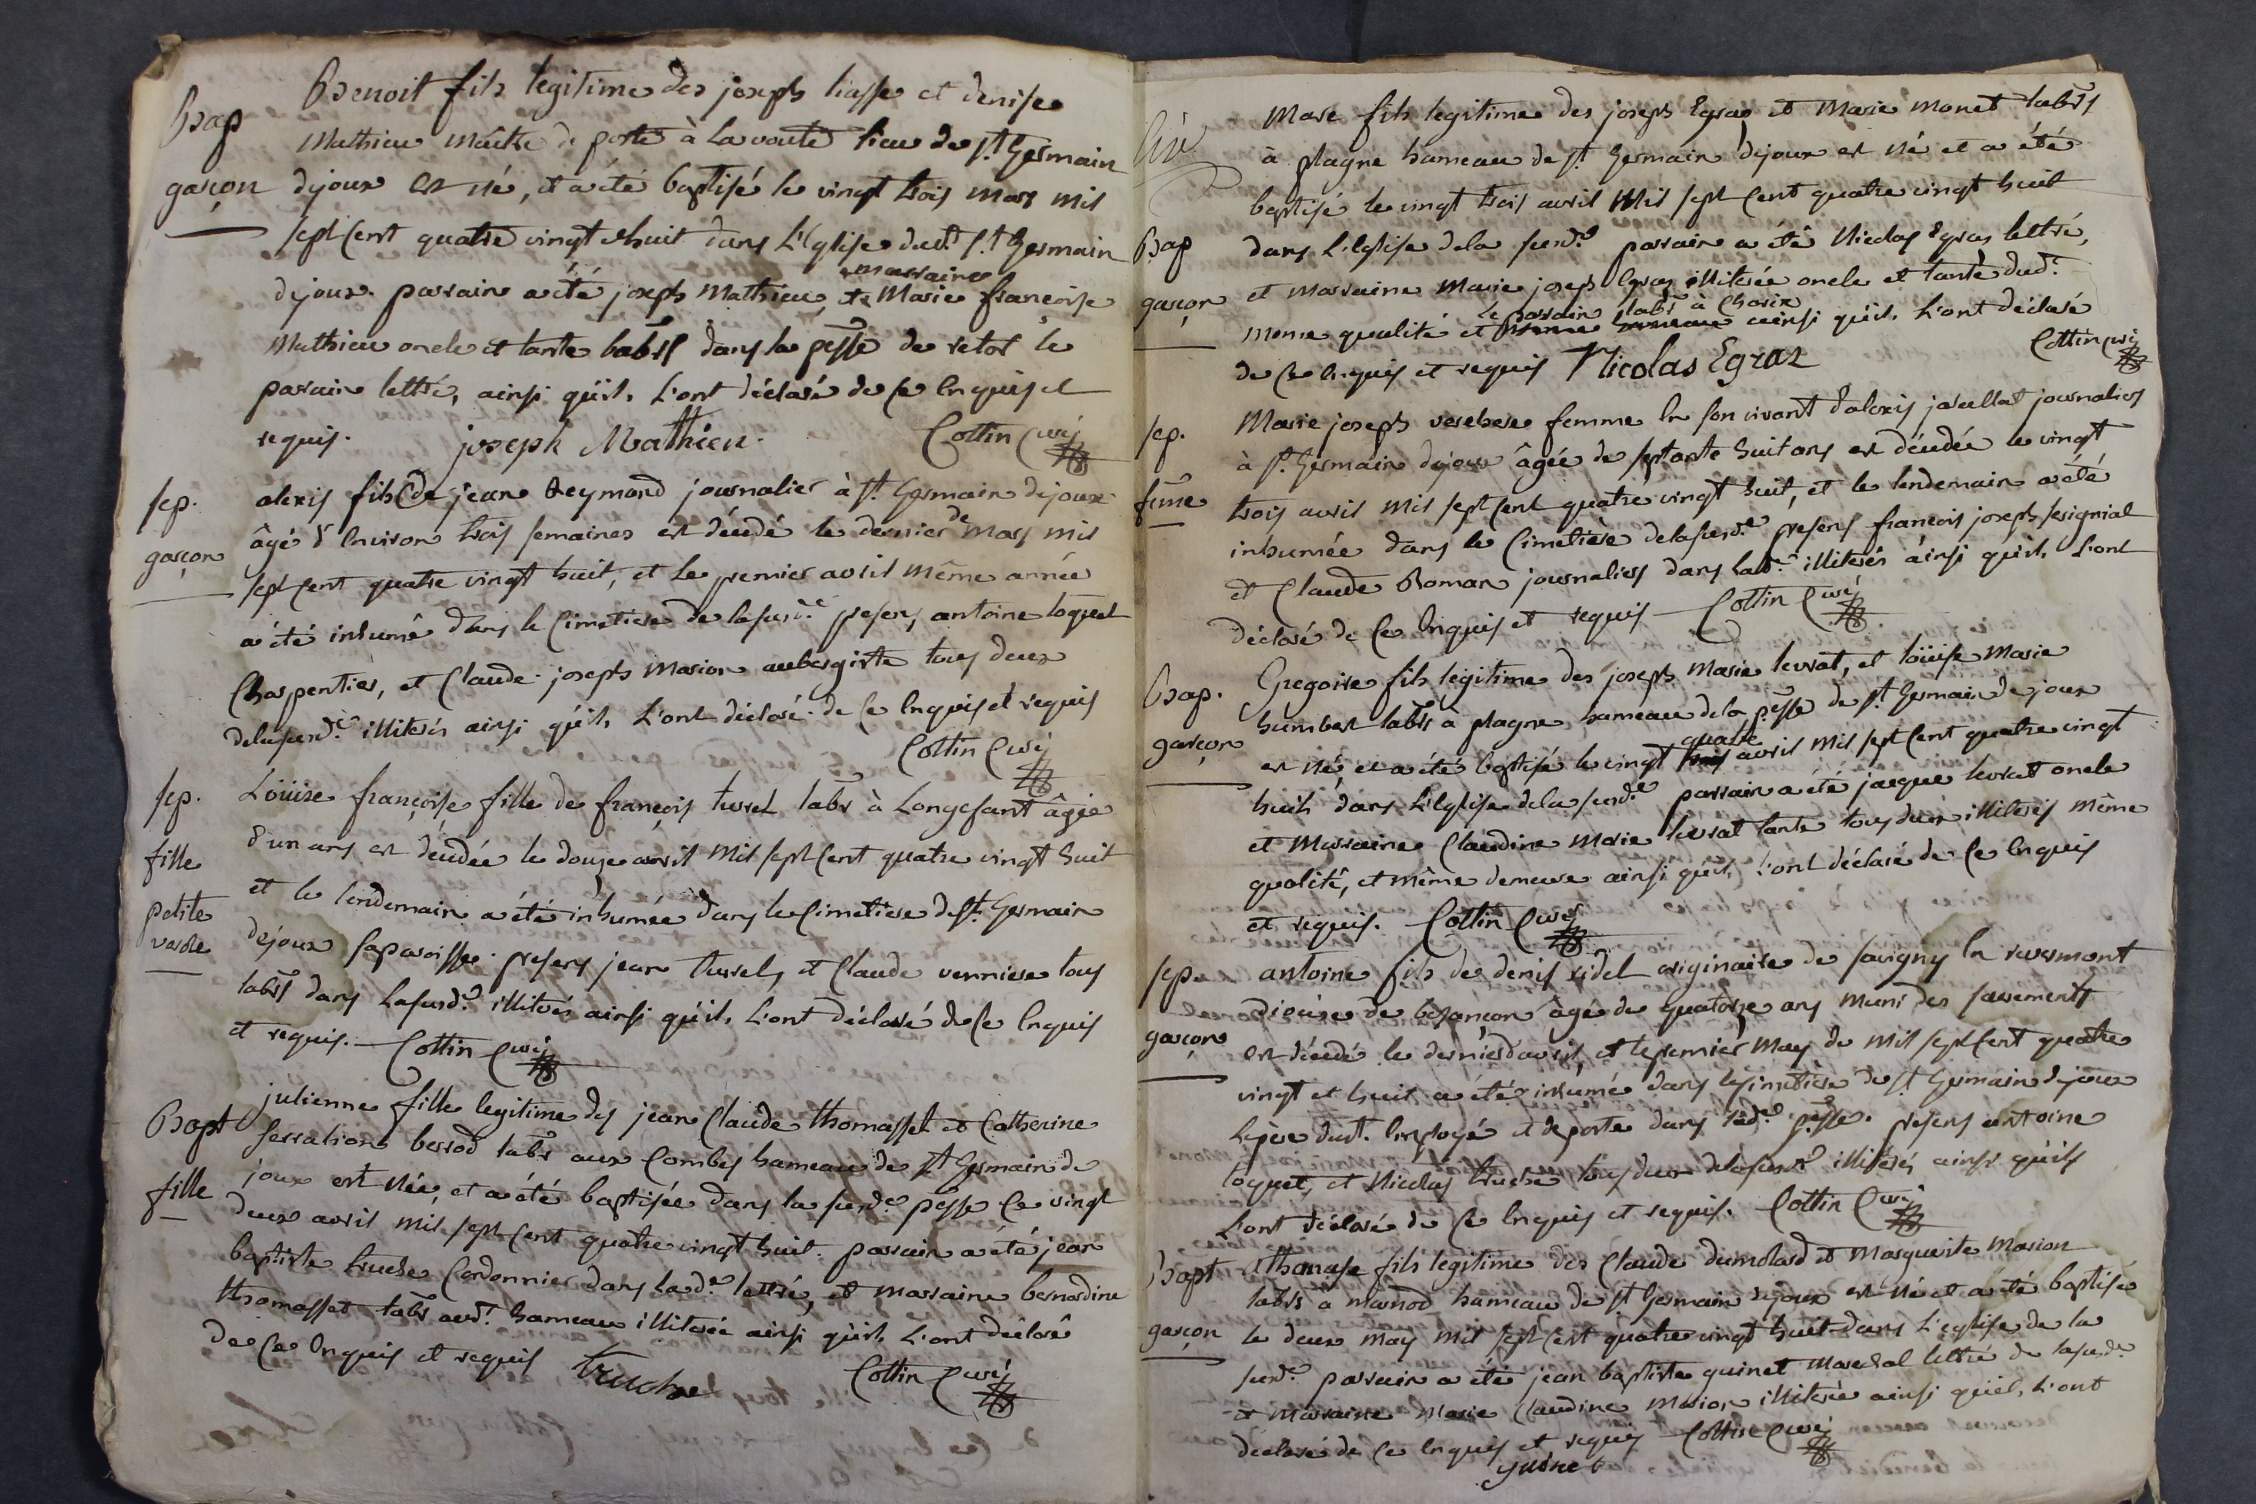 Bap
garçon
Benoit fils legitime des joseph liasse et denise
Mathieu maitre de poste à la voute lieu de st Germain
dejoux est né, et a été baptisé le vingt trois mars mil
sept cent quatre vingt huit dans L'Eglise dud.t st Germain
dejoux. parrain a été joseph Mathieu, et marraine Marie françoise
Mathieu oncle et tante labrs dans la psse de retor le
parain lettré, ainsi qu'ils L'ont déclaré de ce Enquis et
requis. joseph Mathieu. Cottin Curé
sep.
garçon
alexis fils de jean Reymond journalier à st Germain dejoux
âgé d'Environ trois semaines est décédé le dernier de Mars mil
sept cent quatre vingt huit, et le premier avril même année
a été inhumé dans le Cimetiere de lasusd.e presens antoine toquet
Charpentier, et Claude joseph Marion aubergiste tous deux
delasusd.e illiterés ainsi qu'ils L'ont déclaré de ce Enquis et requis
Cottin Curé
sep.
fille
petite
verole
Loüise françoise fille de françois turrel labr à Longefant âgée
d'un ans est décédée le douze avril mil sept cent quatre vingt huit
et le lendemain a été inhumée dans le Cimetiere de st Germain
dejoux saparoisse. presens jean turrel, et Claude verniere tous
labrs dans Lasusd.e illiterés ainsi qu'ils L'ont déclaré de ce Enquis
et requis. Cottin Curé
Bapt
fille
julienne fille legitime des jean Claude thomasset et Catherine
serration berrod labrs aux Combes hameau de st Germain de
joux est née, et a été baptisée dans la susd.e psse Ce vingt
deux avril mil sept cent quatre vingt huit. parrain a été jean
baptiste truche Cordonnier dans lad.e lettré, et marraine bernardine
thomasset labr aud.t hameau illiterée ainsi qu'ils L'ont déclaré
de ce Enquis et requis truche Cottin Curé
Bap
garçon
Marc fils legitime des joseph Egraz et Marie monet labrs
à plagne hameau de st Germain dejoux est né et a été
baptisé le vingt trois avril mil sept cent quatre vingt huit
dans L'Eglise dela susd.e parrain a été Nicolas Egraz lettré,
et marraine Marie joseph Egraz illiterée oncle et tante dud.t
Le parrain labr à Charix
meme qualité et meme hameau ainsi qu'ils L'ont déclaré
de ce Enquis et requis Nicolas Egraz Cottin Curé
sep.
feme
Marie joseph verchere femme En son vivant d'alexis javellat journalier
à st Germain dejoux âgée de septante huit ans est décédée le vingt
trois avril mil sept cent quatre vingt huit, et le lendemain a été
inhumée dans le Cimetière delasusd.e presens francois joseph serignial
et Claude Roman journaliers dans lad.e illiterés ainsi qu'ils L'ont
déclaré de ce Enquis et requis Cottin Curé
Bap.
garçon
Gregoire fils légitime des joseph Marie levrat, et loüise Marie
humbert labrs à plagne hameau dela psse de st Germain de joux
est né et a été baptisé le vingt trois quatre avril mil sept cent quatre vingt
huit dans L'Eglise dela susd.e parrain a été jacque levrat oncle
et Marraine Claudine Marie levrat tante tous deux illiterés même
qualité, et même demeure ainsi qu'ils L'ont déclaré de ce Enquis
et requis. Cottin Curé
sep.
garçon
antoine fils de denis ridel originaire de savigny En revermont
diocése de besançon âgé de quatorze ans muni des sacrements
est décédé le dernier d'avril, et le premier May de mil sept cent quatre
vingt et huit a été inhumé dans le Cimetiere de st Germain dejoux
Le père dud.t Employé et de poste dans lad.e psse. presens antoine
toquet, et Nicolas truche tous deux delasusd.e illiterés ainsi qu'ils
L'ont déclaré de ce Enquis et requis. Cottin Curé
Bapt
garçon
thomase fils legitime des Claude dumolard et Marguerite Marion
labrs à marnod hameau de st Germain dejoux est né et a été baptisé
le deux May mil sept cent quatre vingt huit dans L'eglise de la
susd.e parrain a été jean baptiste guinet Marechal lettré de lasusd.e
et marraine Marie Claudine Marion illiterée ainsi qu'ils L'ont
déclaré de ce Enquis et requis Cottin Curé
guinet